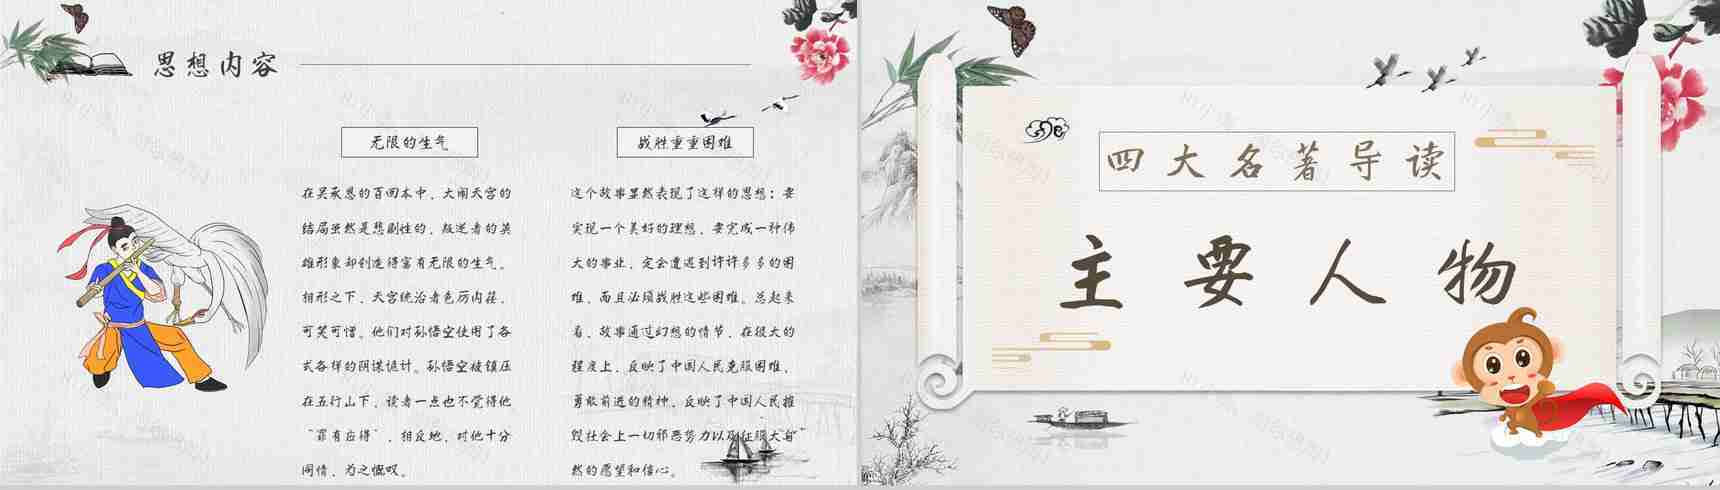 思想内容
无限的生气
在吴承恩的百回本中，大闹天宫的
结局虽然是悲剧性的，叛逆者的英
雄形象却创造得富有无限的生气。
相形之下，天宫统治者色厉内荏，
可笑可憎。他们对孙悟空使用了各
式各样的阴谋诡计。孙悟空被镇压
在五行山下，读者一点也不觉得他
“罪有应得”，相反地，对他十分
同情，为之慨叹。
战胜重重困难
这个故事显然表现了这样的思想：要
实现一个美好的理想，要完成一种伟
大的事业，定会遭遇到许许多多的困
难，而且必须战胜这些困难。总起来
看，故事通过幻想的情节，在很大的
程度上，反映了中国人民克服困难，
勇敢前进的精神，反映了中国人民摧
毁社会上一切邪恶势力以及征服大自
然的愿望和信心。
四大名著导读
主要人物